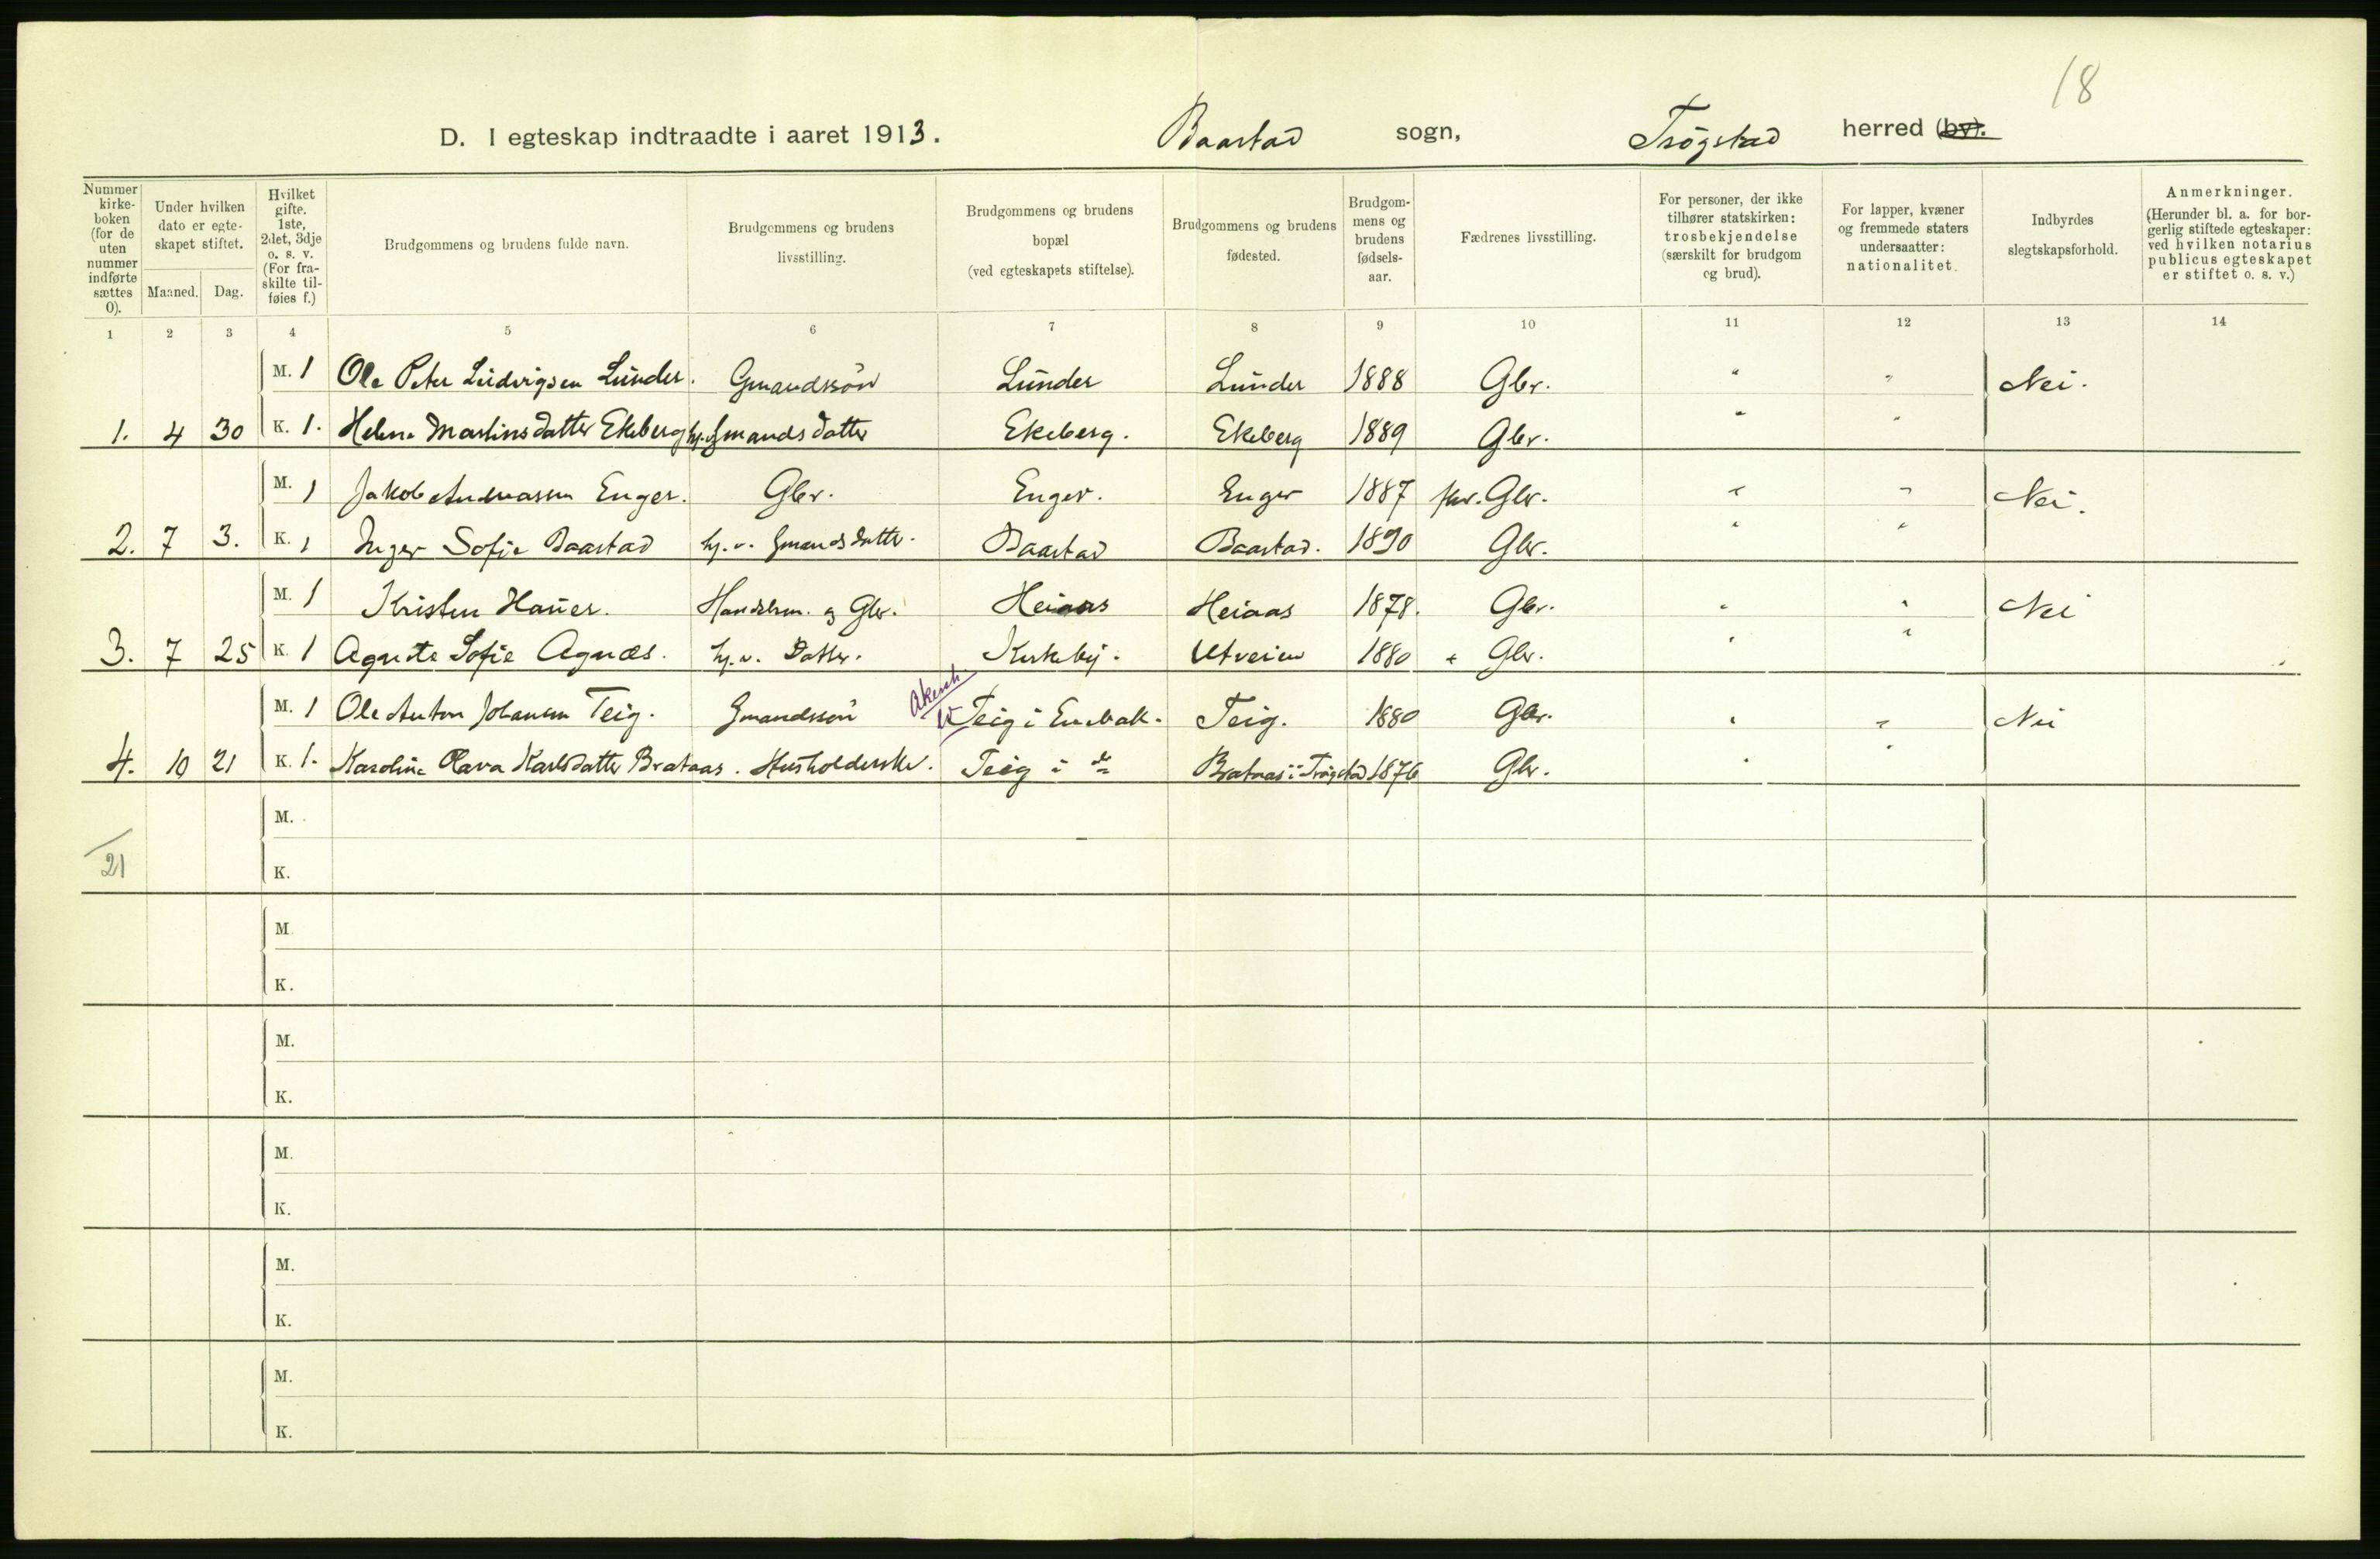 18
D. I egteskap indtraadte i aaret 1913. Baastad sogn, Trøgstad herred (by).
Nummer kirke-boken (for de uten nummer indførte sættes 0). Under hvilken dato er egte-skapet stiftet. Maaned. Dag. Hvilket gifte. 1ste, 2det, 3dje o. s. v. (For fra-skilte til-føies f.) Brudgommens og brudens fulde navn. Brudgommens og brudens livsstilling. Brudgommens og brudens bopæl (ved egteskapets stiftelse). Brudgommens og brudens fødested. Brudgom-mens og brudens fødsels-aar. Fædrenes livsstilling. For personer, der ikke tilhører statskirken: trosbekjendelse (særskilt for brudgom og brud). For lapper, kvæner og fremmede staters undersaatter: nationalitet. Indbyrdes slegtskapsforhold. Anmerkninger. (Herunder bl. a. for bor-gerlig stiftede egteskaper: ved hvilken notarius publicus egteskapet er stiftet o. s. v.)
1 2 3 4 5 6 7 8 9 10 11 12 13 14
M. 1 Ole Peter Ludvigsen Lunder. Gmandssøn Lunder Lunder 1888 Gbr. " " Nei.
1. 4 30 K. 1. Helene Martinsdatter Ekeberg hj.v. Gmandsdatter Ekeberg. Ekeberg 1889 Gbr. " "
M. 1 Jakob Andreassen Enger. Gbr. Enger. Enger 1887 for. Gbr. " " Nei.
2. 7 3. K. 1 Inger Sofie Baastad hj. v. Gmandsdatter. Baastad Baastad. 1890 Gbr. " "
M. 1 Kristen Hauer. Handelsm. og Gbr. Heiaas Heiaas 1878. Gbr. " " Nei
3. 7 25 K. 1 Agnete Sofie Agnæs. hj. v. Datter. Kirkeby. Utveien 1880 + Gbr. " "
Akersh
M. 1 Ole Anton Johansen Teig. Gmandssøn Teig i Enebak. Teig. 1880 Gbr. " " Nei
4. 10 21 K. 1. Karoline Olava Karlsdatter Brataas. Husholderske. Teig i do Brataas i Trøgstad 1876 Gbr. " "
M.
21
K.
M
K.
M.
K.
M.
K.
M.
K.
M.
K.